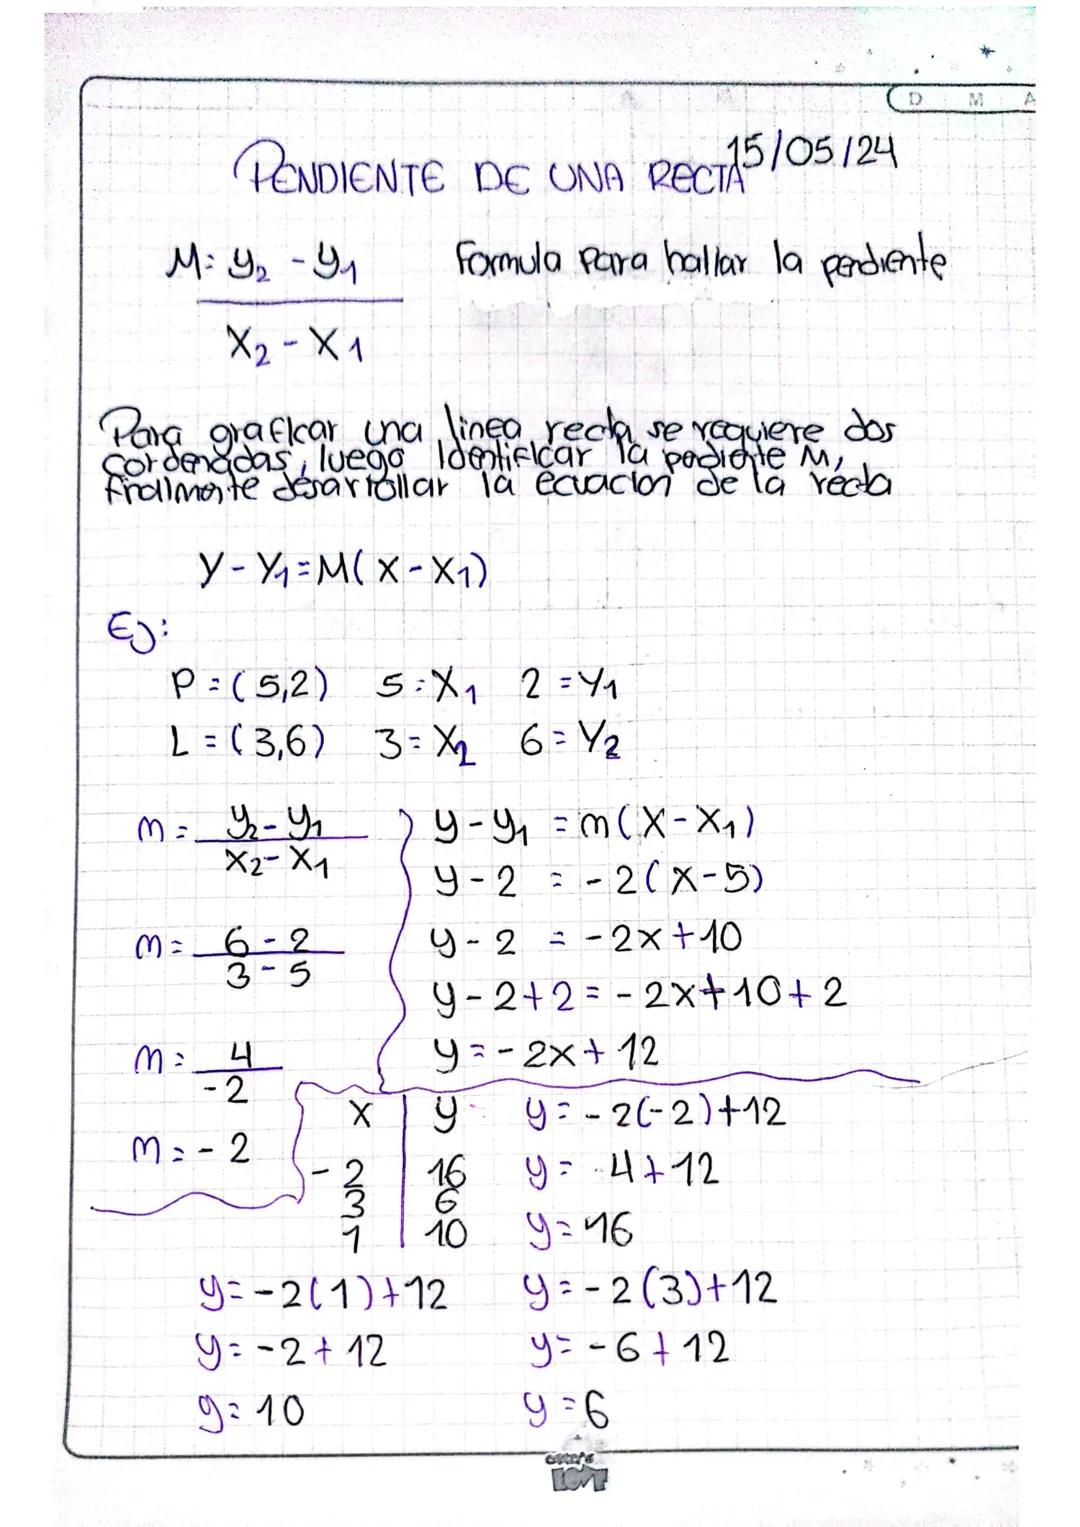 D M A
15/05/24
PENDIENTE DE UNA RECTA
M= y₂ - y₁ Formula para hallar la pendiente
X₂ - X₁
Para graficar una linea recta se requiere dos
cordenadas, luego identificar la pediente M,
finalmente desarrollar la ecuacion de la recta
Y - Y₁ = M( X - X₁)
Ej:
P = (5,2) 5 = X₁ 2 = Y₁
L = (3,6) 3 = X₂ 6 = Y₂
m = y₂ - y₁
x₂ - x₁
m = 6 - 2
3 - 5
m = 4
-2
m = - 2
y - y₁ = m( X - X₁)
y - 2 = - 2( X - 5)
y - 2 = - 2x + 10
y - 2 + 2 = - 2x + 10 + 2
y = - 2x + 12
X y
- 2 16
3 6
1 10
y = - 2(-2) + 12
y = 4 + 12
y = 16
y = - 2(1) + 12
y = - 2 + 12
y = 10
y = - 2(3) + 12
y = - 6 + 12
y = 6
LOVE